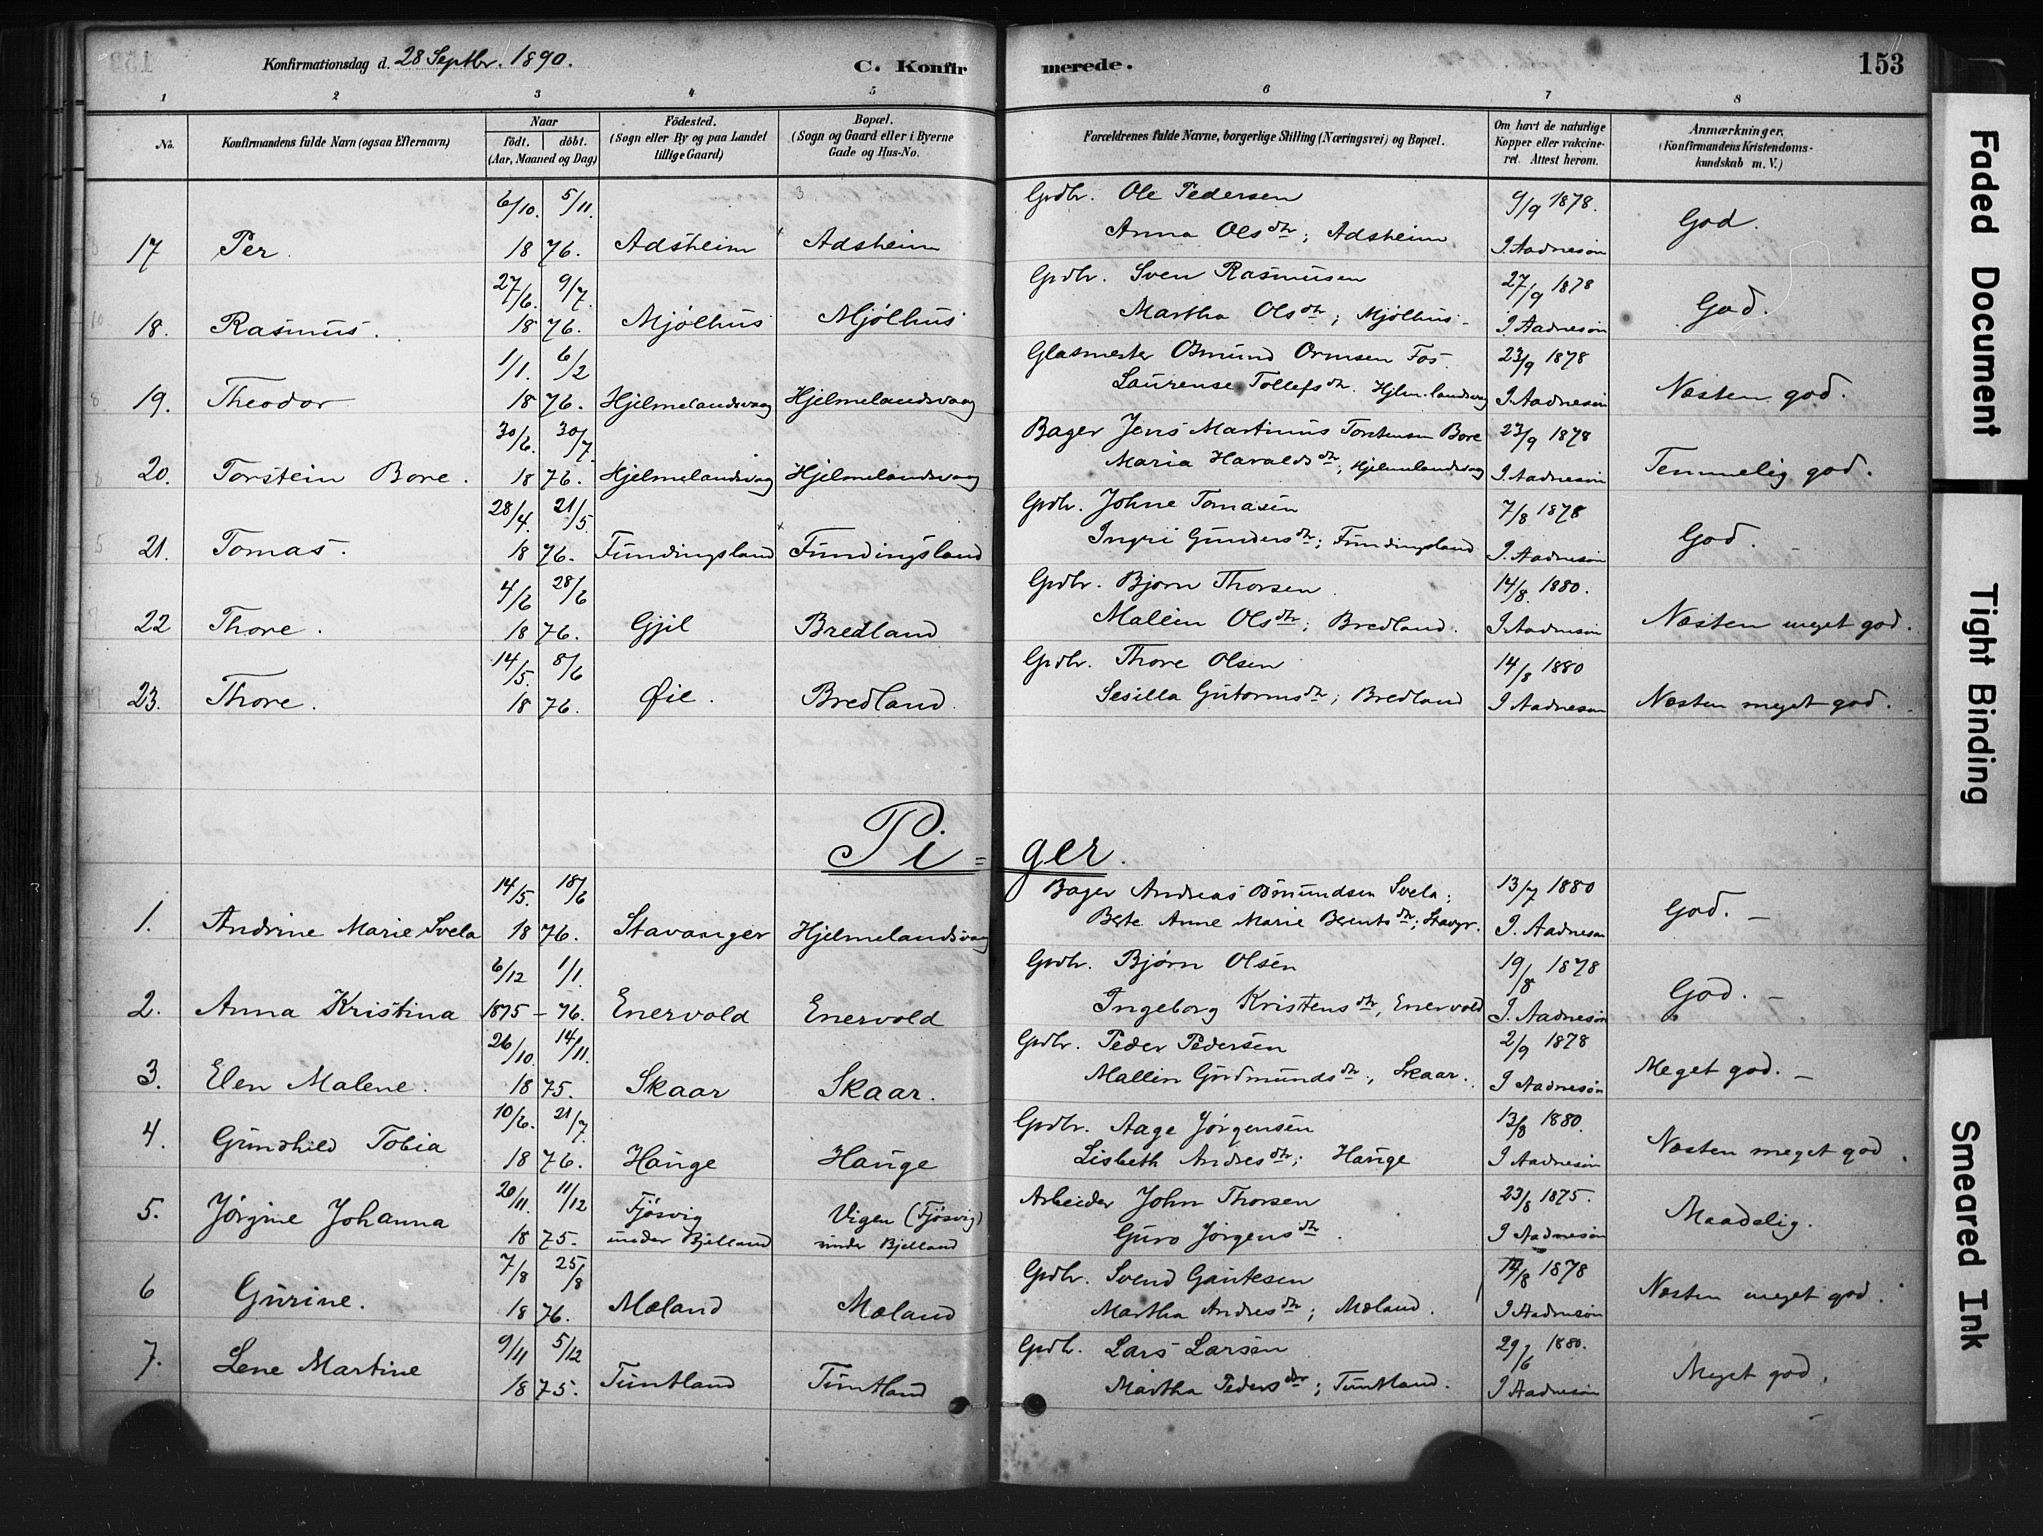 Konfirmationsdag d. 28 Septbr. 1890.
C. Konfirmerede.
153
1 2 3 4 5 6 7 8
No.
Konfirmandens fulde Navn (ogsaa Efternavn)
Naar
født. døbt.
(Aar, Maaned og Dag)
Fødested.
(Sogn eller By og paa Landet tillige Gaard)
Bopæl.
(Sogn og Gaard eller i Byerne Gade og Hus-No.
Forældrenes fulde Navne, borgerlige Stilling (Næringsvei) og Bopæl.
Om havt de naturlige Kopper eller vakcineret. Attest herom.
Anmærkninger,
(Konfirmandens Kristendomskundskab m. V.)
6/10. 5/11. Grdbr. Ole Pedersen 9/9 1878.
17 Per. 18 76. Adsheim Adsheim Anna Olsdtr; Adsheim I. Aadnesøn God.
27/6. 9/7. Grdbr. Sven Rasmusen 27/9 1878
18. Rasmus. 18 76. Mjølhus Mjølhus Martha Olsdtr; Mjølhus. I Aadnesøn God.
1/1. 6/2 Glasmester Osmund Ormsen Fos. 23/9 1878
19. Theodor 18 76. Hjelmelandsvaag Hjelmelandsvaag Laurense Tollefsdtr. Hjlm.landsvag I. Aadnesøn Næsten god.
30/6. 30/7. Bager Jens Martinus Torstensen Bore 23/9 1878
20. Torstein Bore. 18 76. Hjelmelandsvaag Hjelmelandsvaag Maria Haraldsdtr, Hjelmelandsvag I. Aadnesøn Temmelig god.
28/4. 21/5. Grdbr. Johne Tomasen 7/8 1878
21. Tomas. 18 76. Fundingsland Fundingsland Ingri Gundersdtr; Fundingsland I. Aadnesøn God.
4/6 28/6 Grdbr. Bjørn Thorsen. 14/8. 1880.
22 Thore. 18 76. Gjil Bredland Mallin Olsdtr; Bredland. I Aadnesøn Næsten meget god.
14/5. 8/6 Grdbr. Thore Olsen 14/8 1880
23. Thore. 18 76. Øie. Bredland. Sesilla Gutormsdtr; Bredland I Aadnesøn Næsten meget god.
Pi-ger.
14/5. 18/6 Bager Andreas Osmundsen Svela; 13/7 1880
1. Andrine Marie Svela 18 76. Stavanger Hjelmelandsvaag Bete Anne Marie Berentsdtr; Stavgr. I. Aadnesøn God.-
6/12 1/1. Grdbr. Bjørn Olsen 19/8 1878
2. Anna Kristina 1875 - 76. Enervold Enervold Ingeborg Kristensdtr, Enervold I. Aadnesøn God.-
26/10. 14/11. Grdbr. Peder Pedersen 2/9 1878
3. Elen Malene. 18 75. Skaar Skaar. Mallin Gudmundsdtr, Skaar. I Aadnesøn Meget god.-
10/6. 21/7. Grdbr. Aage Jørgensen 13/8 1880.
4. Gunhild Tobia 18 76. Hauge Hauge Lisbeth Andresdtr; Hauge I Aadnesøn Næsten meget god.
20/11. 11/12 Arbeider John Thorsen 23/8 1875.
5. Jørgine Johanna 18 75. Fjøsvig under Bjelland Vigen (Fjøsvig) under Bjelland Guro Jørgensdtr. I Aadnesøn Maadelig.
7/8 25/8 Grdbr. Svend Gautesen 14/8 1878
6 Gurine. 18 76. Mæland Mæland Martha Andresdtr; Mæland. I Aadnesøn Næsten meget god.
9/11 5/12 Grdbr. Lars Larsen 29/6 1880.
7. Lene Martine 18 75. Tuntland Tuntland Martha Pedersdtr; Tuntland. I Aadnesøn Meget god.
Faded Document
Tight Binding
Smeared Ink